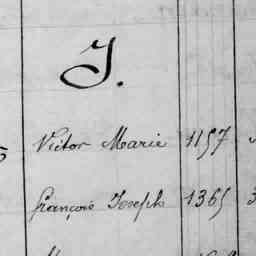 J.
Victor Marie 1157
François Joseph 1365